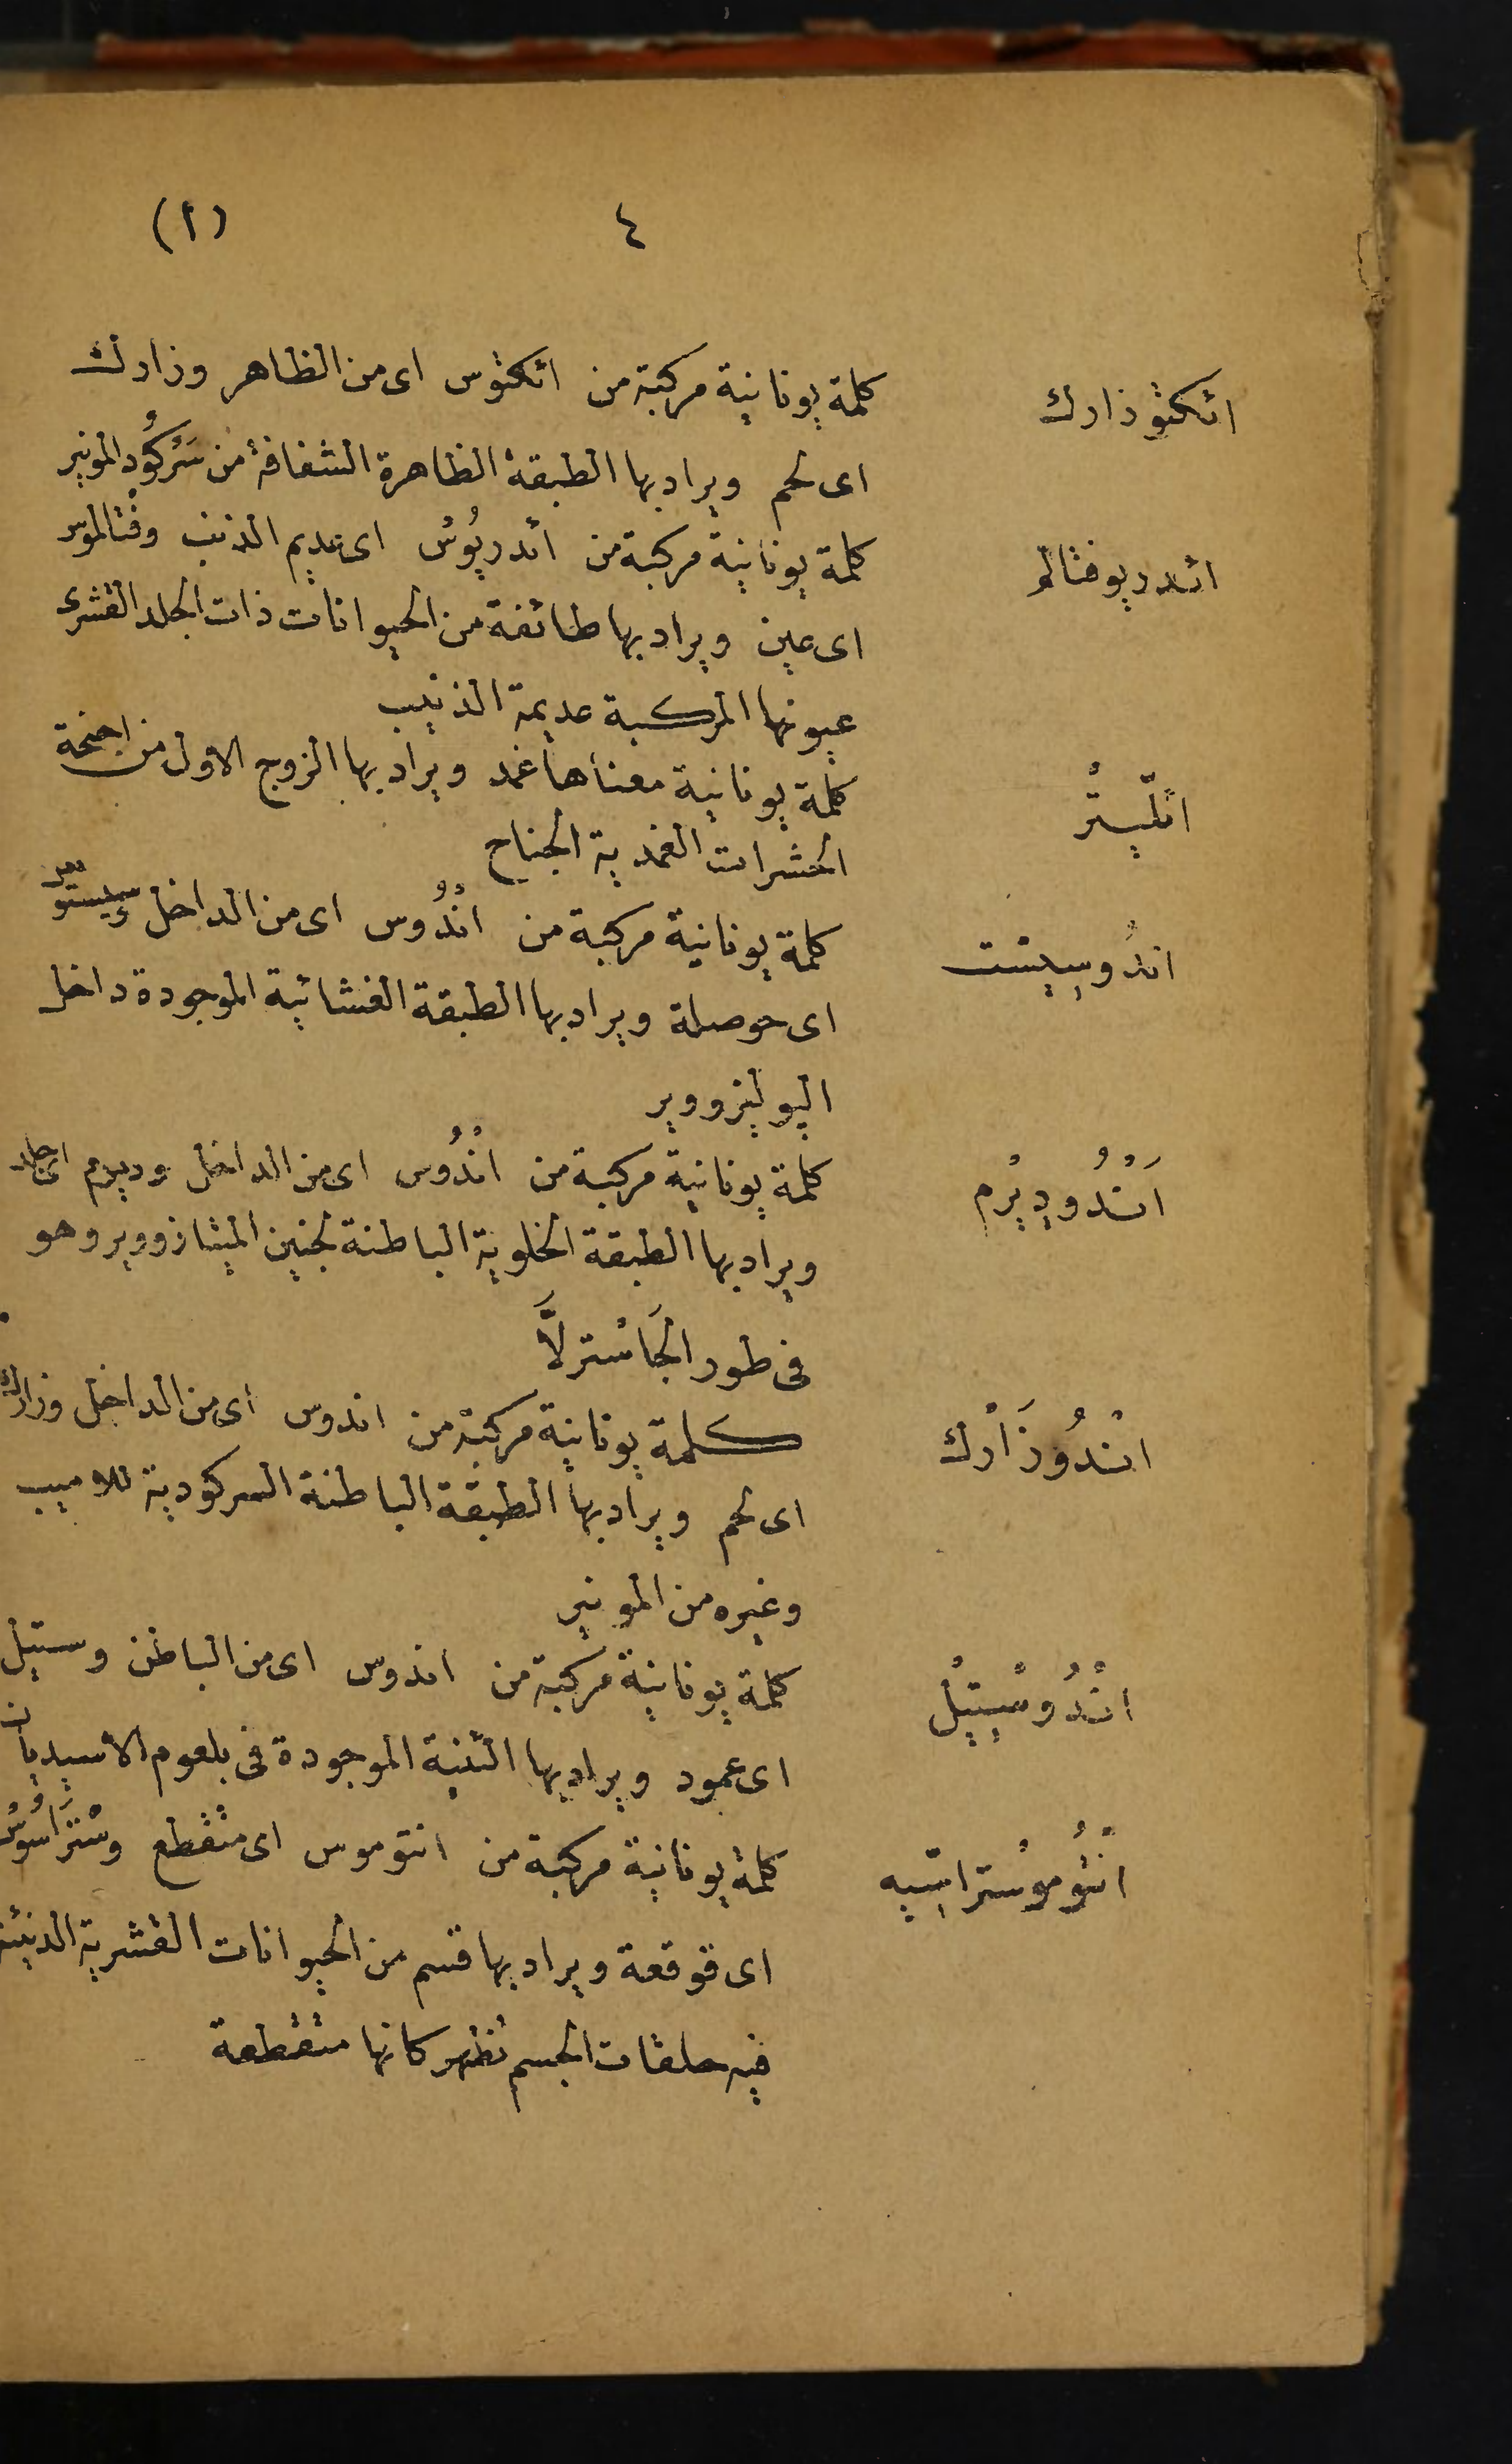 ٤ (ا)
اتكثوزارك كلمة يونانية مركبة من اتكثوس اى من الظاهر وزارك
اى لحم ويراد بها الطبقة الظاهرة الشفافة من سَرْكُودِ المونير
ائدريوفثالم كلمة يونانية مركبة من ائدريُوسْ اى عديم الذنيب وفْثالموس
اى عين ويراد بها طائفة من الحيوانات ذات الجلد القشرى
عيونها المركبة عديمة الذنيب
اتلّيترْ كلمة يونانية معناها غمد ويراد بها الزوج الاول من اجنحة
الحشرات الغمدية الجناح
اندُوسِيسْت كلمة يونانية مركبة من انْدُوس اى من الداخل
اى حوصلة ويراد بها الطبقة الغشائية الموجودة داخل
البوليزووير
اَنْدُودِيرْم كلمة يونانية مركبة من انْدُوس اى من الداخل وديرم اى جلد
ويراد بها الطبقة الخلوية الباطنة لجنين الميتازووير وهو
فى طور الجَاسْترلَّا
انْدُوزَارْك كلمة يونانية مركبة من اندوس اى من الداخل وزارك
اى لحم ويراد بها الطبقة الباطنة السركودية للاميب
وغيره من المونير
انْدُوسْتِيْل كلمة يونانية مركبة من اندوس اى من الباطن وستيل
اى عمود ويراد بها الثنية الموجودة فى بلعوم الأسيديات
انْتُومُوسْتراسّيه كلمة يونانية مركبة من انتوموس اى متقطع وسْتَراسُوس
اى قوقعة ويراد بها قسم من الحيوانات القشرية الدنيئة
فيه حلقات الجسم تظهر كانها متقطعة